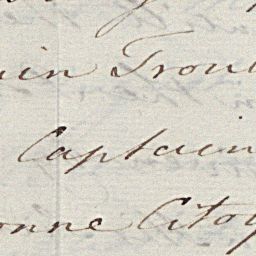 in Trou
Captain
onne Cito